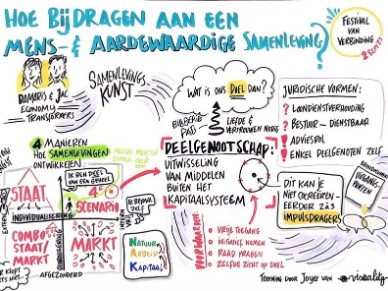 HOE BIJDRAGEN AAN EEN
MENS- & AARDEWAARDIGE SAMENLEVING?
FESTIVAL VAN VERBINDING
2 SEPT
DAMARIS & JAC
ECONOMY TRANSFORMERS
SAMENLEVINGS
KUNST
WAT IS ONS DOEL DAN?
BIBBERIG PAD
LIEFDE & VERTROUWEN NODIG
JURIDISCHE VORMEN:
? LOONDIENSTVERHOUDING
? BESTUUR = DIENSTBAAR
! ADVIESROL
! ENKEL DEELGENOTEN ZELF
4 MANIEREN
HOE SAMENLEVINGEN
ONTWIKKELEN
IK BEN DEEL VAN EEN GEHEEL
STAAT
4E SCENARIO
INDIVIDUALISERING
COMBO STAAT/ MARKT
MARKT
AFGEZONDERD
NATUUR
ARBEID
KAPITAAL
DEELGENOOTSCHAP:
UITWISSELING
VAN MIDDELEN
BUITEN HET
KAPITAALSYSTEEM
VOORWAARDEN
VRIJE TOEGANG
INITIATIEF NEMEN
RAAD VRAGEN
ZELFDE ZICHT OP DOEL
DIT KAN JE
NIET OCREËREN
EERDER ZIJN
IMPULSDRAGERS
TEKENING DOOR JOYCE VAN visuality